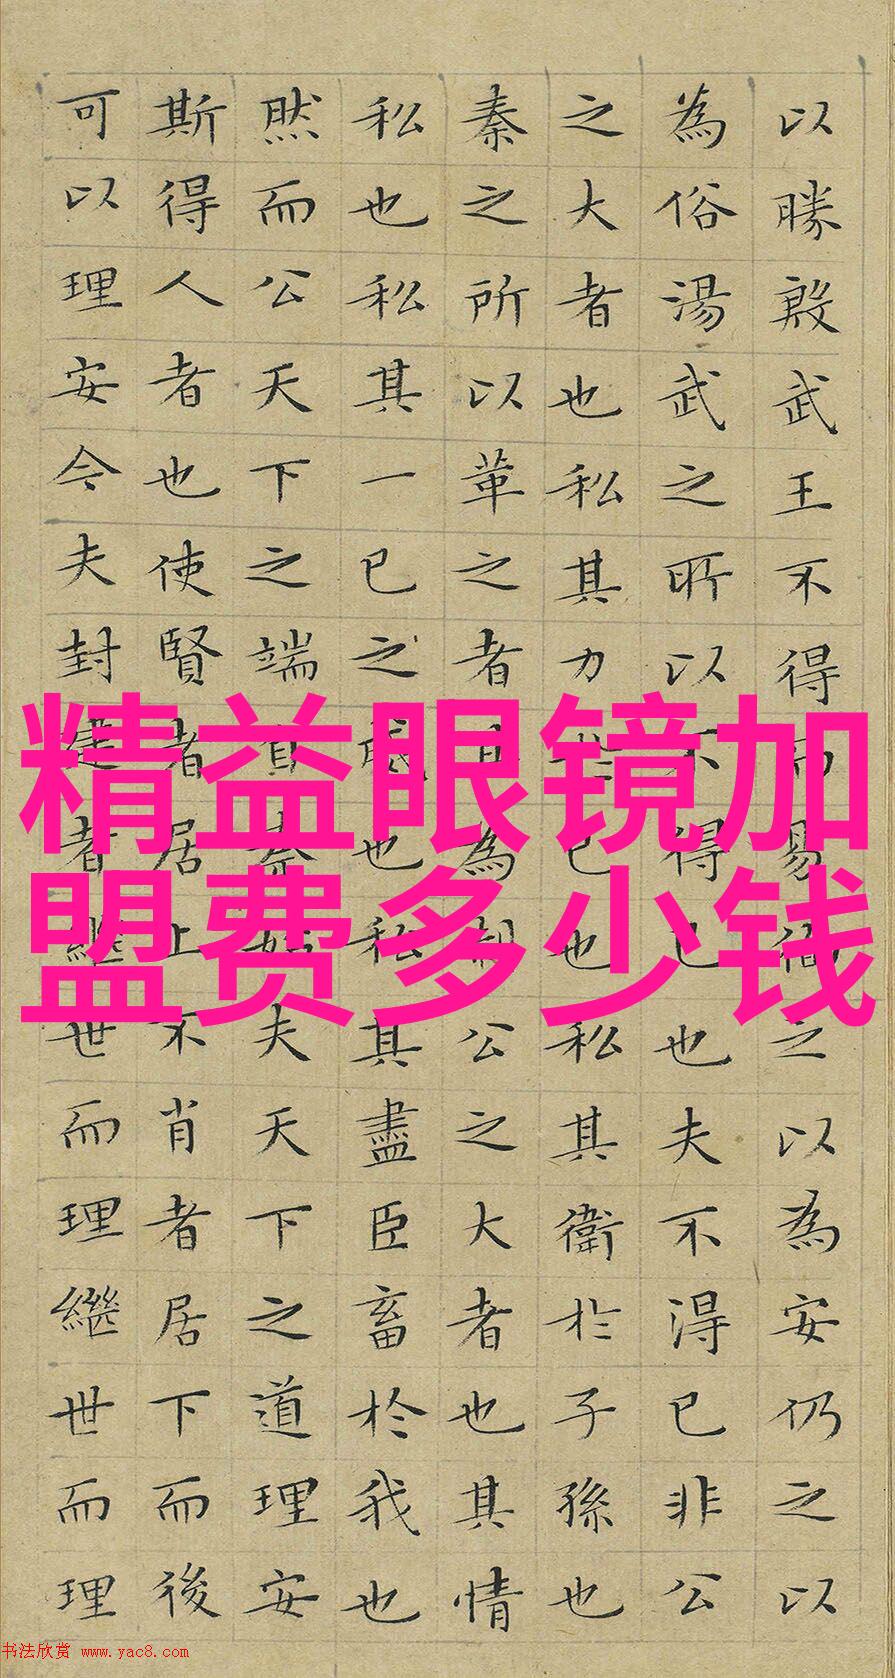 以勝殷武王不得而易徇之以為安仍之以
為俗湯武之所以不得已也夫不得已非公
之大者也私其力於己也私其衛於子孫也
秦之所以革之者其為制公之大者也其情
私也私其一己之威也私其盡臣畜於我也
然而公天下之端自秦始夫天下之道理安
斯得人者也使賢者居上不肖者居下而後
可以理安今夫封建者繼世而理繼世而理
精益眼镜加
盟费多少钱
书法欣赏 www.yac8.com